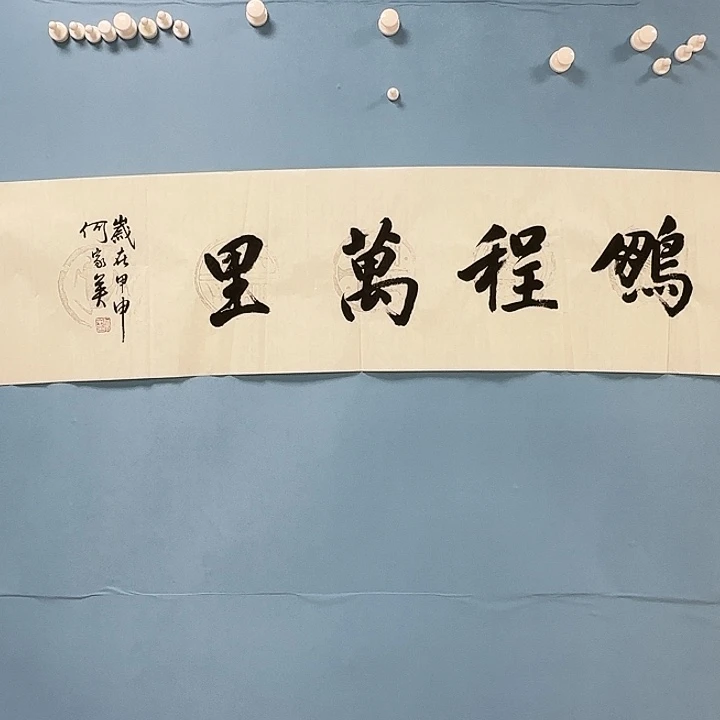 鵬程萬里
歲在甲申
何家英